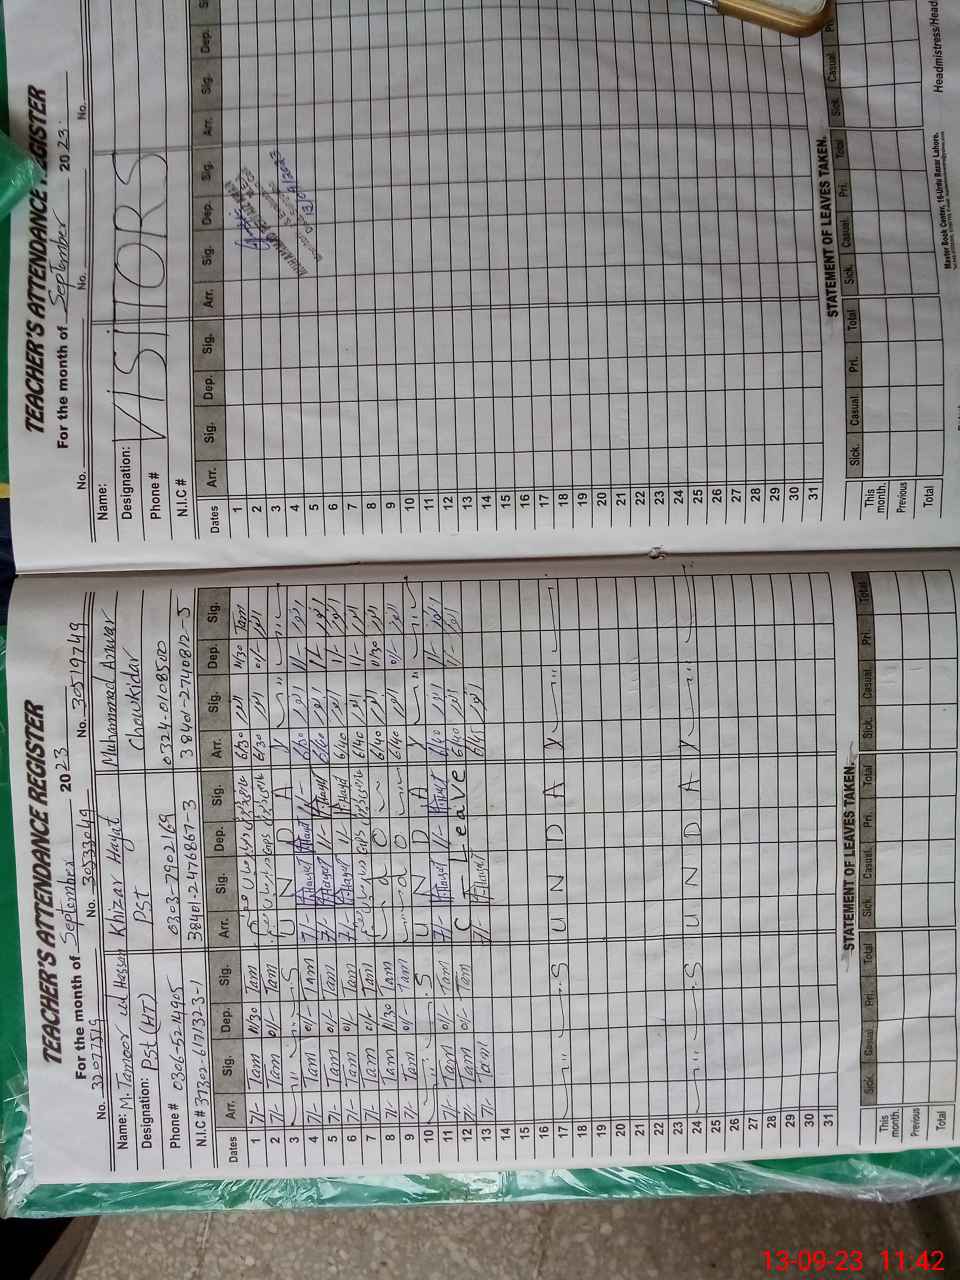 TEACHER'S ATTENDANCE REGISTER
For the month of September 2023
No. 32077519 No. 30533049 No. 30519749
Name: M. Tamoor ul Hassan Khizar Hayat Muhammad Anwar
Designation: Pst (HT) Pst Chowkidar
Phone # 0306-5214905 0303-7902169 0324-0108500
N.I.C # 37302-617132-3-1 38401-2476867-3 38401-2740812-5
Dates Arr. Sig. Dep. Sig. Arr. Sig. Dep. Sig. Arr. Sig. Dep. Sig.
1 7/- Tam 11/30 Tam 6/30 11/30 Tam
2 7/- Tam 0/- Tam 6/30 0/-
3 S U N D A Y
4 7/- Tam 0/- Tam 7/- Hayat 1/- Hayat 6/30 1/-
5 7/- Tam 0/- Tam 7/- Hayat 1/- Hayat 6/40 1/-
6 7/- Tam 0/- Tam 7/- Hayat 1/- Hayat 6/40 1/-
7 7/- Tam 0/- Tam 6/40 1/-
8 7/- Tam 11/30 Tam 6/40 11/30
9 7/- Tam 0/- Tam 6/40 0/-
10 S U N D A Y
11 7/- Tam 0/- Tam 7/- Hayat 1/- Hayat 6/40 1/-
12 7/- Tam 0/- Tam C - Leave 6/40 1/-
13 7/- Tam 7/- Hayat 6/45
14
15
16
17 S U N D A Y
18
19
20
21
22
23
24 S U N D A Y
25
26
27
28
29
30
31
STATEMENT OF LEAVES TAKEN.
Sick. Casual Pri. Total Sick. Casual. Pri. Total Sick. Casual. Pri. Total
This month.
Previous
Total
TEACHER'S ATTENDANCE REGISTER
For the month of September 2023
No. No. No.
Name:
Designation: VISITORS
Phone #
N.I.C #
Dates Arr. Sig. Dep. Sig. Arr. Sig. Dep. Sig. Arr. Sig. Dep.
1
2
3
4
5
6
7
8
9
10
11
12
13
14
15
16
17
18
19
20
21
22
23
24
25
26
27
28
29
30
31
STATEMENT OF LEAVES TAKEN.
Sick. Casual. Pri. Total Sick. Casual. Pri. Total Sick. Casual
This month.
Previous
Total
Headmistress/Head
Master Book Center, 16-Urdu Bazar Lahore.
13-09-23 11:42